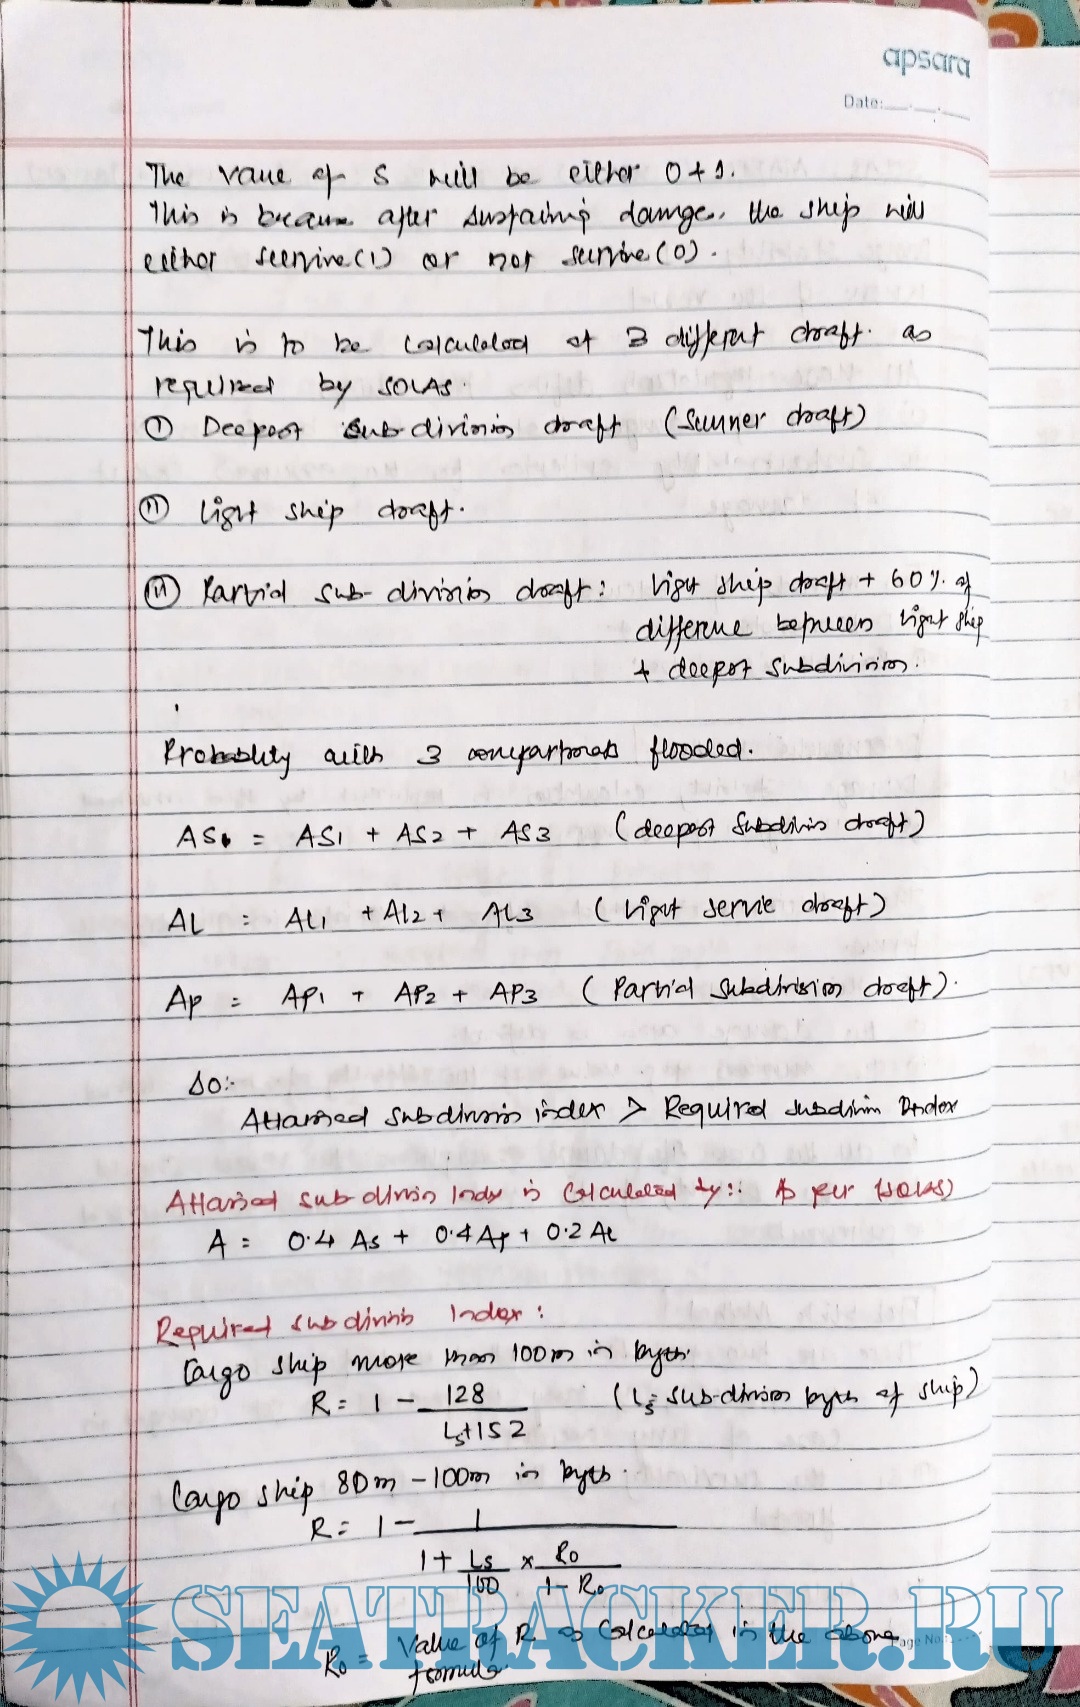 apsara
Date:
The vaue of S will be either 0 + 1.
This is because after sustaining damge, the ship will
either survive (1) or not survive (0).
This is to be calculated at 3 different draft. as
required by SOLAS.
(I) Deepest sub-division draft (Summer draft)
(II) Light ship draft.
(III) Partial sub-division draft: Light ship draft + 60% of
difference between light ship
+ deepest subdivision.
Probability with 3 compartments flooded.
AS = AS1 + AS2 + AS3 (deepest subdivision draft)
AL = AL1 + AL2 + AL3 (Light service draft)
Ap = AP1 + AP2 + AP3 (Partial subdivision draft).
So:-
Attained subdivision index > Required subdivision Index
Attained sub division Index is calculated by:: As per (SOLAS)
A = 0.4 As + 0.4 Ap + 0.2 AL
Required subdivision Index:
Cargo ship more than 100m in length.
R = 1 - 128 (Ls = sub-division length of ship)
Ls+152
Cargo ship 80m - 100m in length.
R = 1 - 1
1 + Ls x Ro
100 1 - Ro
Ro = Value of R as calculated in the above
formula.
Page No.:
SEATRACKER.RU